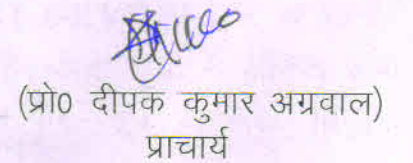 (प्रो0 दीपक कुमार अग्रवाल)
प्राचार्य